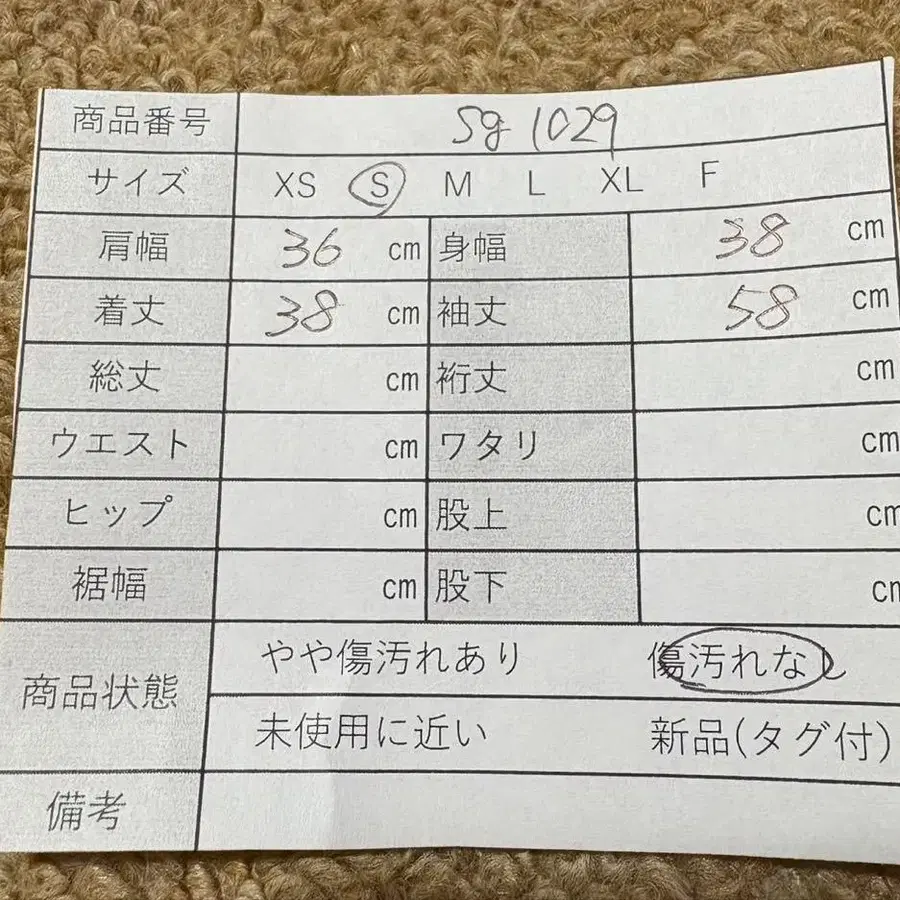 商品番号 Sg 1029
サイズ XS S M L XL F
肩幅 36 cm 身幅 38 cm
着丈 38 cm 袖丈 58 cm
総丈 cm 裄丈 cm
ウエスト cm ワタリ cm
ヒップ cm 股上 cm
裾幅 cm 股下 cm
商品状態 やや傷汚れあり 傷汚れなし
未使用に近い 新品(タグ付)
備考